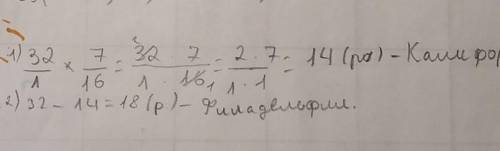 1) 32/1 × 7/16 = 32 · 7 / 1 · 16 = 2 · 7 / 1 · 1 = 14 (р) – Калифор
2) 32 – 14 = 18 (р) – Филадельфии.